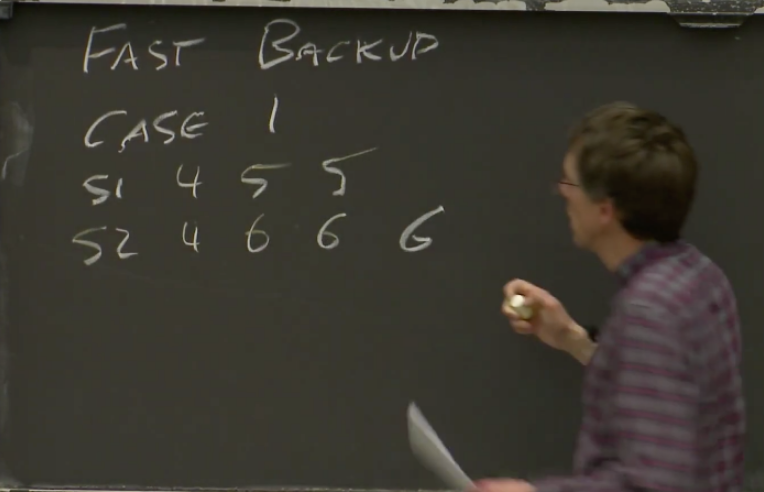 FAST BACKUP
CASE 1
S1 4 5 5
S2 4 6 6 6